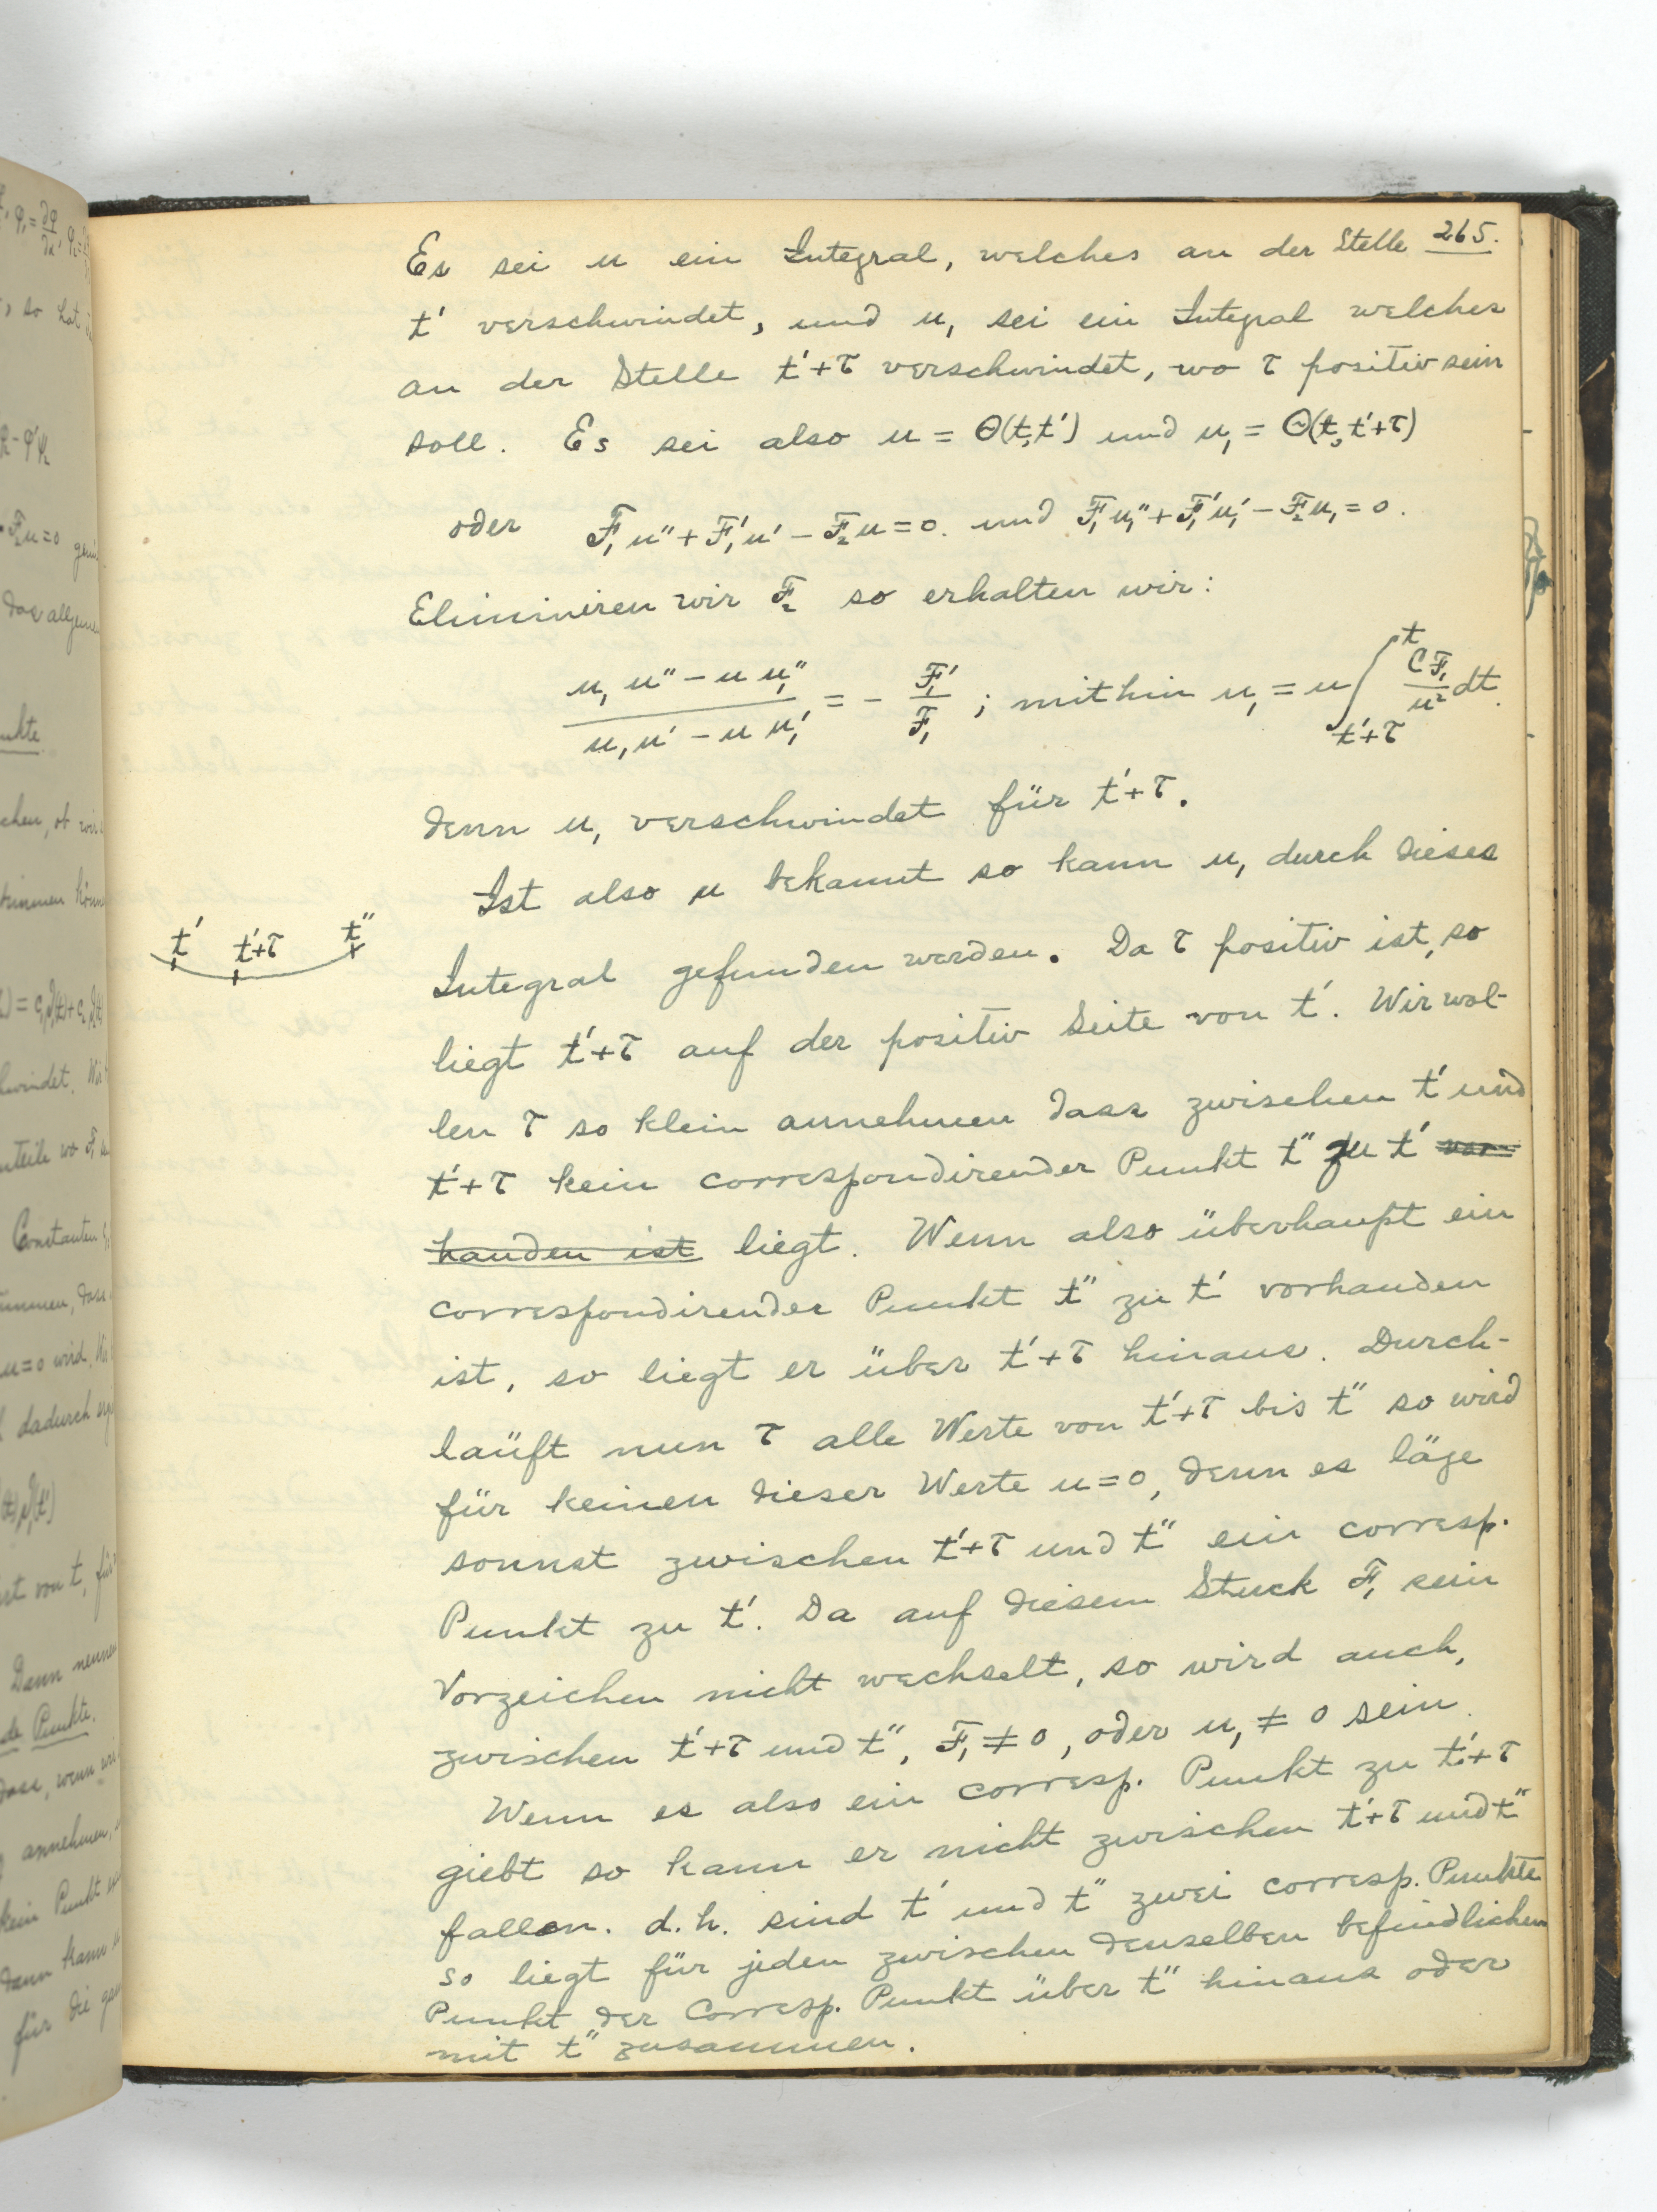 265.
Es sei u ein Integral, welches an der Stelle
t' verschwindet, und u₁ sei ein Integral welches
an der Stelle t'+τ verschwindet, wo τ positiv sein
soll. Es sei also u = Θ(t,t') und u₁ = Θ(t,t'+τ)
oder F₁u''+F₁'u'−F₂u=0. und F₁u₁''+F₁'u₁'−F₂u₁=0.
Eliminiren wir F₂ so erhalten wir:
(u₁u''−uu₁'')/(u₁u'−uu₁') = − F₁'/F₁ ; mithin u₁ = u∫_{t'+τ}^{t} CF₁/u² dt.
denn u₁ verschwindet für t'+τ.
Ist also u bekannt so kann u₁ durch dieses
t' t'+τ t''
Integral gefunden werden. Da τ positiv ist, so
liegt t'+τ auf der positiv Seite von t'. Wir wol-
len τ so klein annehmen dass zwischen t' und
t'+τ kein correspondirender Punkt t'' zu t' vor-
handen ist liegt. Wenn also überhaupt ein
correspondirender Punkt t'' zu t' vorhanden
ist, so liegt er über t'+τ hinaus. Durch-
läuft nun τ alle Werte von t'+τ bis t'' so wird
für keinen dieser Werte u=0, denn es läge
sonnst zwischen t'+τ und t'' ein corresp.
Punkt zu t'. Da auf diesem Stuck F₁ sein
Vorzeichen nicht wechselt, so wird auch,
zwischen t'+τ und t'', F₁ ≠ 0, oder u₁ ≠ 0 sein.
Wenn es also ein corresp. Punkt zu t'+τ
giebt so kann er nicht zwischen t'+τ und t''
fallen. d.h. sind t' und t'' zwei corresp. Punkte
so liegt für jeden zwischen denselben befindlichen
Punkt der Corresp. Punkt über t'' hinaus oder
mit t'' zusammen.